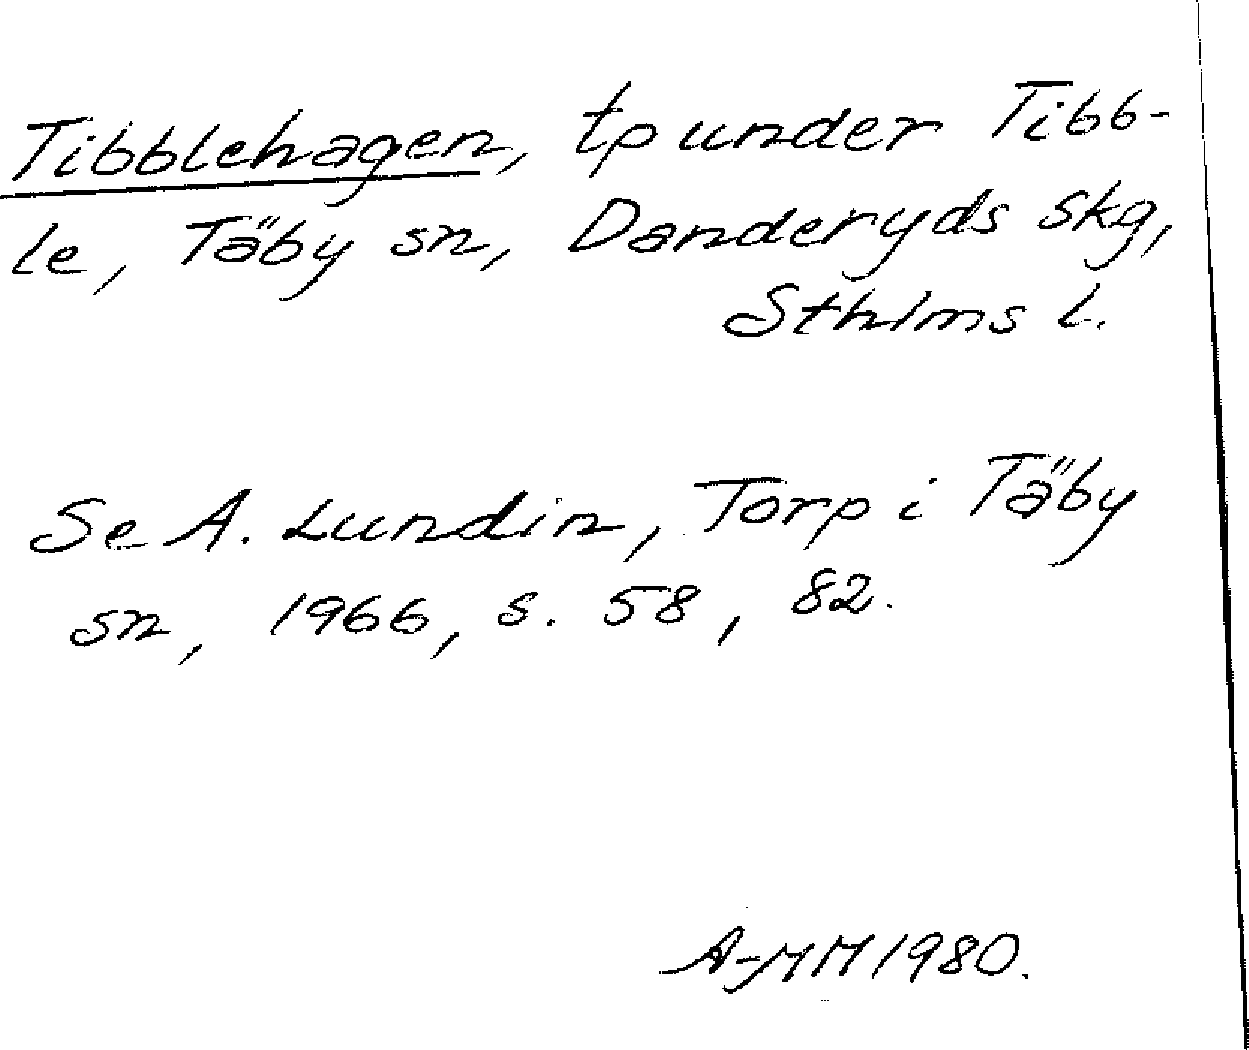 Tibblehagen, tp under Tibb-
le, Täby sn, Danderyds skg,
Sthlms l.
Se A. Lundin, Torp i Täby
sn, 1966, s. 58, 82.
A-MM 1980.